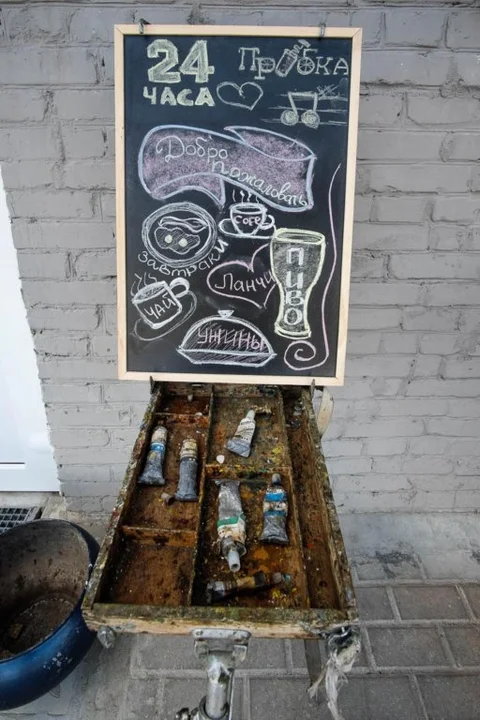 24 Пробка
ЧАСА
Добро
пожаловать
COFE
Завтраки
Ланчи
ПИВО
ЧАЙ
УЖИНЫ